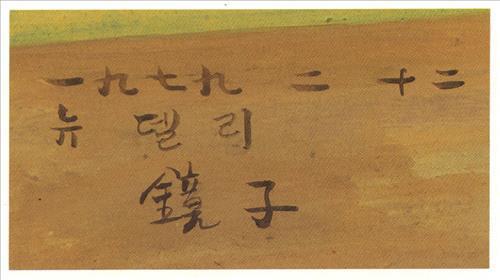 一九七九 二 十二
뉴 델리
鏡子